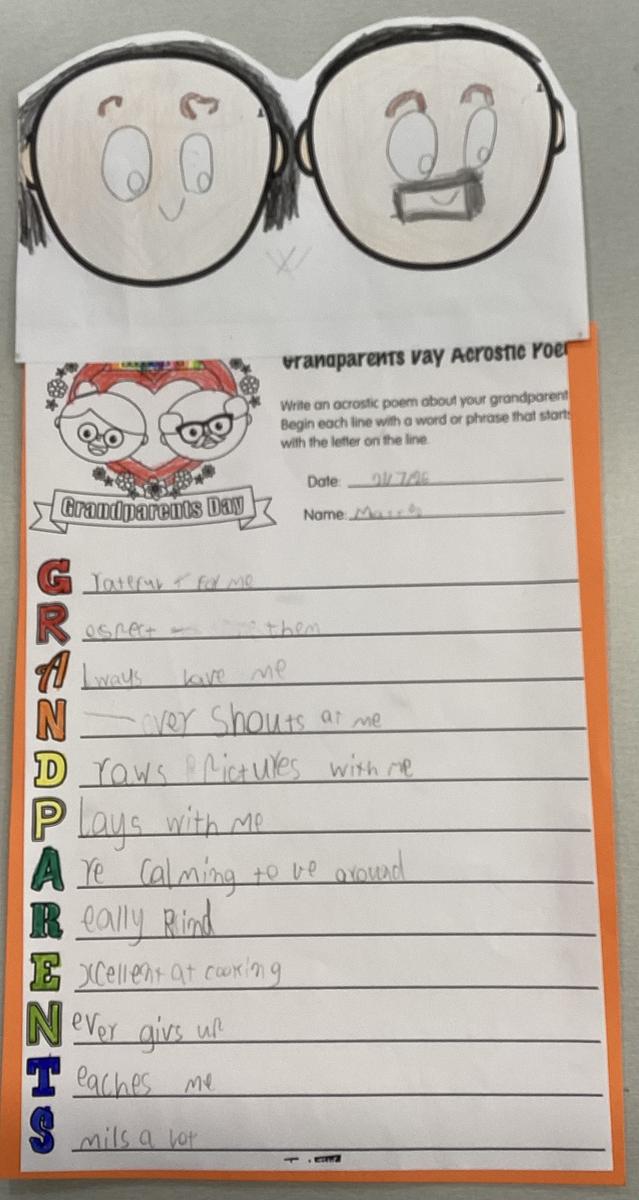 Grandparents Day Acrostic Poe
Write an acrostic poem about your grandparent
Begin each line with a word or phrase that starts
with the letter on the line.
Date:
Name:
Grandparents Day
G rateful for me
R espect them
A lways love me
N ever shouts at me
D raws Pictures with me
P lays with me
A re Calming to be around
R eally kind
E xcellent at cooking
N ever givs up
T eaches me
S mils a lot